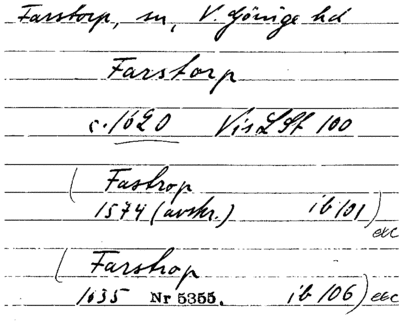 Farstorp, sn, V. Göinge hd
Farstorp
c. 1620 VisLSt 100
( Fastrop
1574 (avskr.) ib 101) etc
( Farstrop
1635 Nr 5355. ib 106) etc